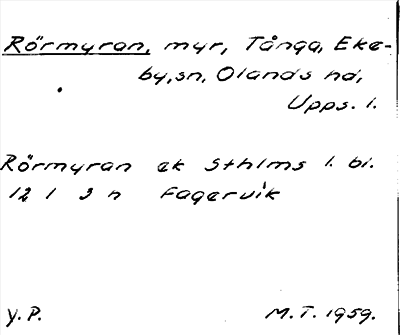 Rörmyran, myr, Tånga, Eke-
by, sn, Olands hd,
Upps. l.
Rörmyran ek Sthlms l. bl.
12 1 3 n Fagervik
y. P. M. T. 1959.